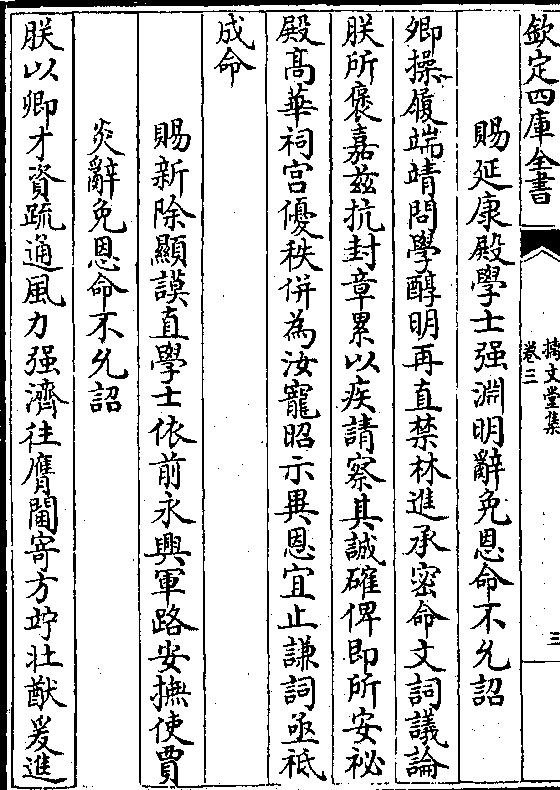 欽定四庫全書
摛文堂集
卷三
三
賜延康殿學士强淵明辭免恩命不允詔
卿操履端靖問學醇明再直禁林進承密命文詞議論
朕所褒嘉兹抗封章累以疾請察其誠確俾即所安祕
殿髙華祠宫優秩併為汝寵昭示異恩宜止謙詞亟祗
成命
賜新除顯謨直學士依前永興軍路安撫使賈
炎辭免恩命不允詔
朕以卿才資疏通風力强濟往膺閫寄方竚壯猷爰進